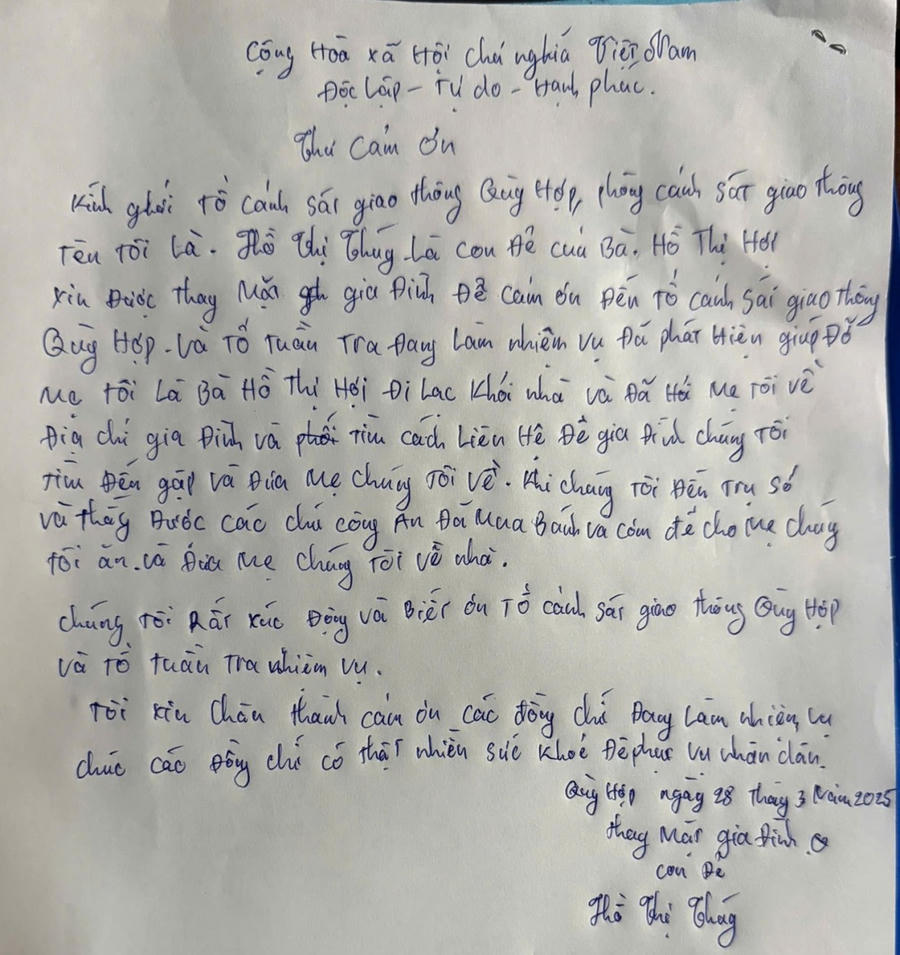 Cộng Hoà xã Hội chủ nghĩa Việt Nam
Độc lập - Tự do - Hạnh phúc.
Thư cảm ơn
Kính ghửi Tổ cảnh sát giao thông Quỳ Hợp, phòng cảnh sát giao thông
Tên Tôi Là. Hồ Thị Thủy Là con Đẻ của Bà. Hồ Thị Hợi
xin Được thay Mặt gia Đình Để cảm ơn Đến Tổ cảnh sát giao thông
Quỳ Hợp. Và Tổ Tuần Tra Đang Làm nhiệm vụ Đã phát Hiện giúp Đỡ
Mẹ Tôi Là Bà Hồ Thị Hợi Đi Lạc Khỏi nhà và Đã Hỏi Mẹ Tôi về
Địa chỉ gia Đình và Tìm cách Liên Hệ Để gia Đình chúng Tôi
Tìm Đến gặp và Đưa Mẹ chúng Tôi Về. Khi chúng Tôi Đến Trụ sở
và thấy Được các chú công An Đã Mua Bánh và cơm để cho Mẹ chúng
tôi ăn. và Đưa Mẹ chúng Tôi về nhà.
chúng Tôi Rất xúc Động và Biết ơn Tổ cảnh sát giao thông Quỳ Hợp
và Tổ Tuần Tra nhiệm vụ.
Tôi xin chân thành cảm ơn các đồng chí Đang Làm nhiệm vụ
chúc các Đồng chí có thật nhiều sức khoẻ Để phục vụ nhân dân.
Quỳ Hợp ngày 28 tháng 3 Năm 2025
thay Mặt gia Đình
con Đẻ
Hồ Thị Thủy